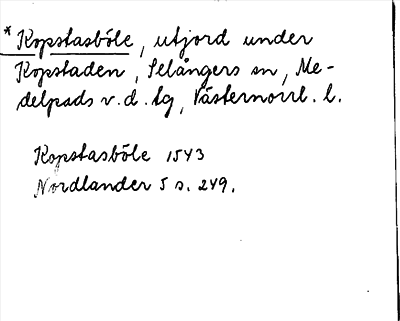 * Kopstasböle, utjord under
Kopstaden, Selångers sn, Me-
delpads v. d. tg, Västernorrl. l.
Kopstasböle 1543
Nordlander 5 s. 249.